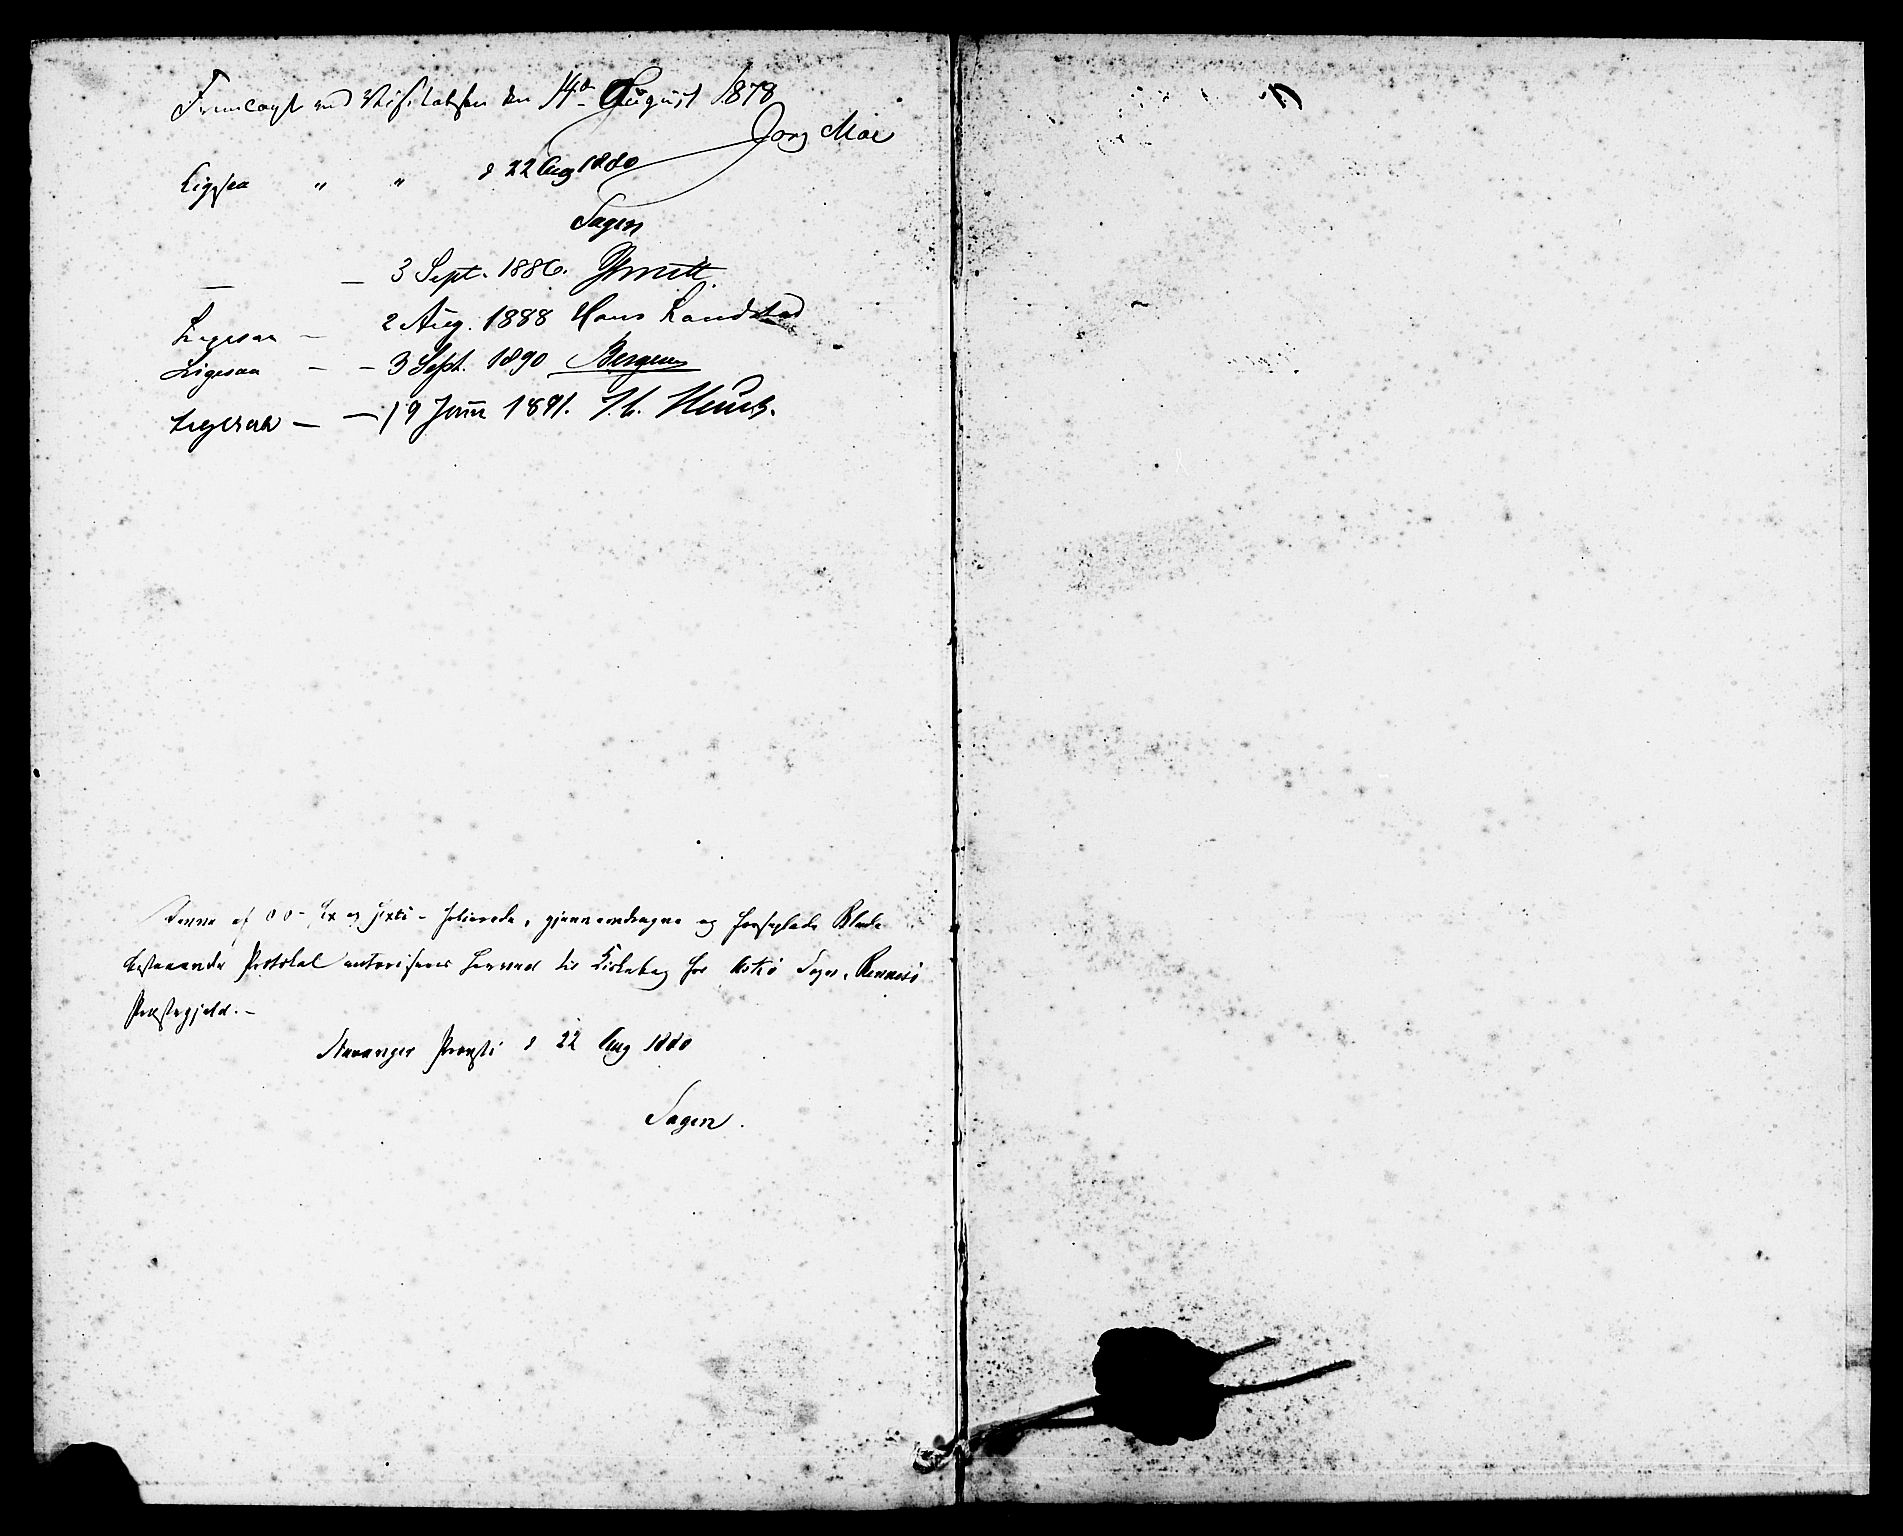 Fremlagt ved Visitatsen den 14de August 1878
Jørg Moe
Ligesaa " " d 22 Aug 1880
Sagen
— — 3 Sept. 1886.
Ligesaa — 2 Aug. 1888 Hans Landstad
Ligesaa — — 3 Sept. 1890
Ligesaa — — 19 Juni 1891. J. C. Heuch.
Denne af og folierede, gjennemdragne og forseglede Blade
bestaaende Protokol autoriseres herved til Kirkebog for Sogn, Rennesø
Præstegjeld. —
Stavanger Provsti d 22 Aug 1880
Sagen.